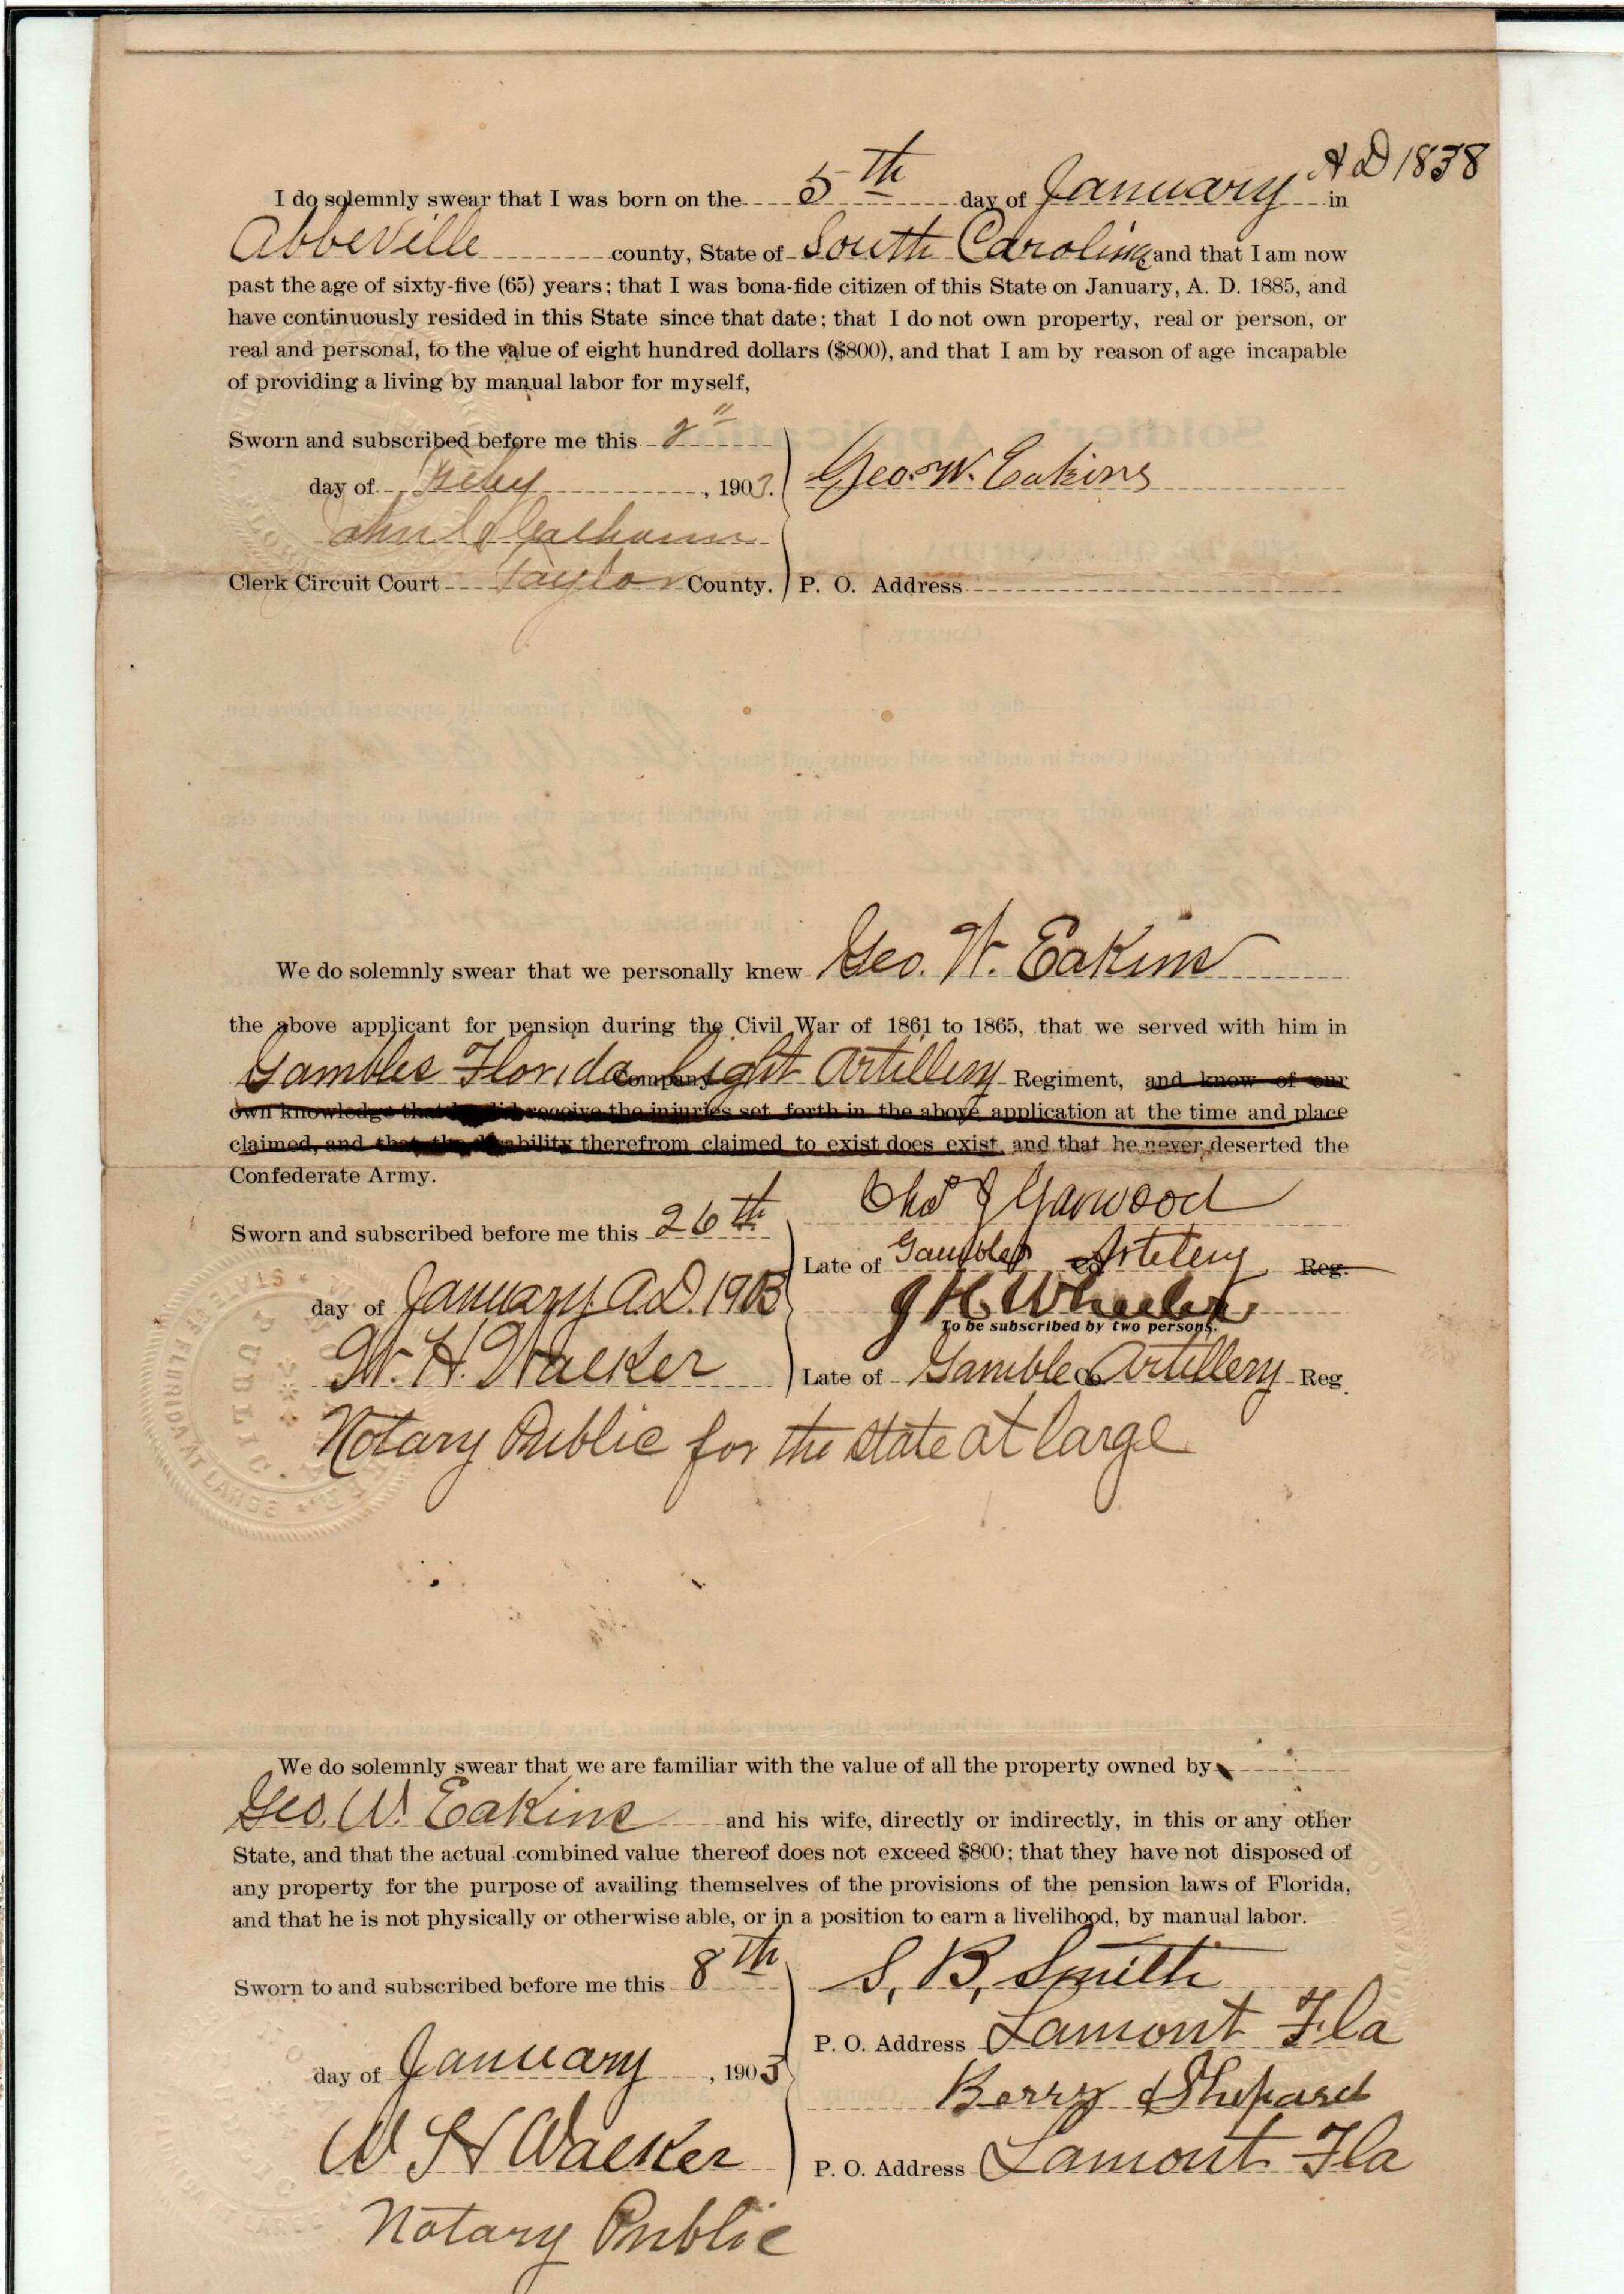 A D 1838
I do solemnly swear that I was born on the 5th day of January in
Abbeville county, State of South Carolina and that I am now
past the age of sixty-five (65) years; that I was bona-fide citizen of this State on January, A. D. 1885, and
have continuously resided in this State since that date; that I do not own property, real or person, or
real and personal, to the value of eight hundred dollars ($800), and that I am by reason of age incapable
of providing a living by manual labor for myself,
Sworn and subscribed before me this
day of Feby , 1903. Geo. W. Eakins
John Calhoun
Clerk Circuit Court Taylor County. P. O. Address
We do solemnly swear that we personally knew Geo. W. Eakins
the above applicant for pension during the Civil War of 1861 to 1865, that we served with him in
Gambles Florida Company Light Artillery Regiment, and know of our
own knowledge that he did receive the injuries set forth in the above application at the time and place
claimed, and that the disability therefrom claimed to exist does exist, and that he never deserted the
Confederate Army.
Sworn and subscribed before me this 26th Chas J Garwood
Late of Gambles Artilery Reg.
day of January A.D. 1903 J H. Wheeler
To be subscribed by two persons.
W. H. Walker Late of Gamble Co Artillery Reg.
Notary Public for the state at large
We do solemnly swear that we are familiar with the value of all the property owned by
Geo. W. Eakins and his wife, directly or indirectly, in this or any other
State, and that the actual combined value thereof does not exceed $800; that they have not disposed of
any property for the purpose of availing themselves of the provisions of the pension laws of Florida,
and that he is not physically or otherwise able, or in a position to earn a livelihood, by manual labor.
Sworn to and subscribed before me this 8th S. B. Smith
P. O. Address Lamont Fla
day of January , 1903
Berry Shepard
W H Walker P. O. Address Lamont Fla
Notary Public